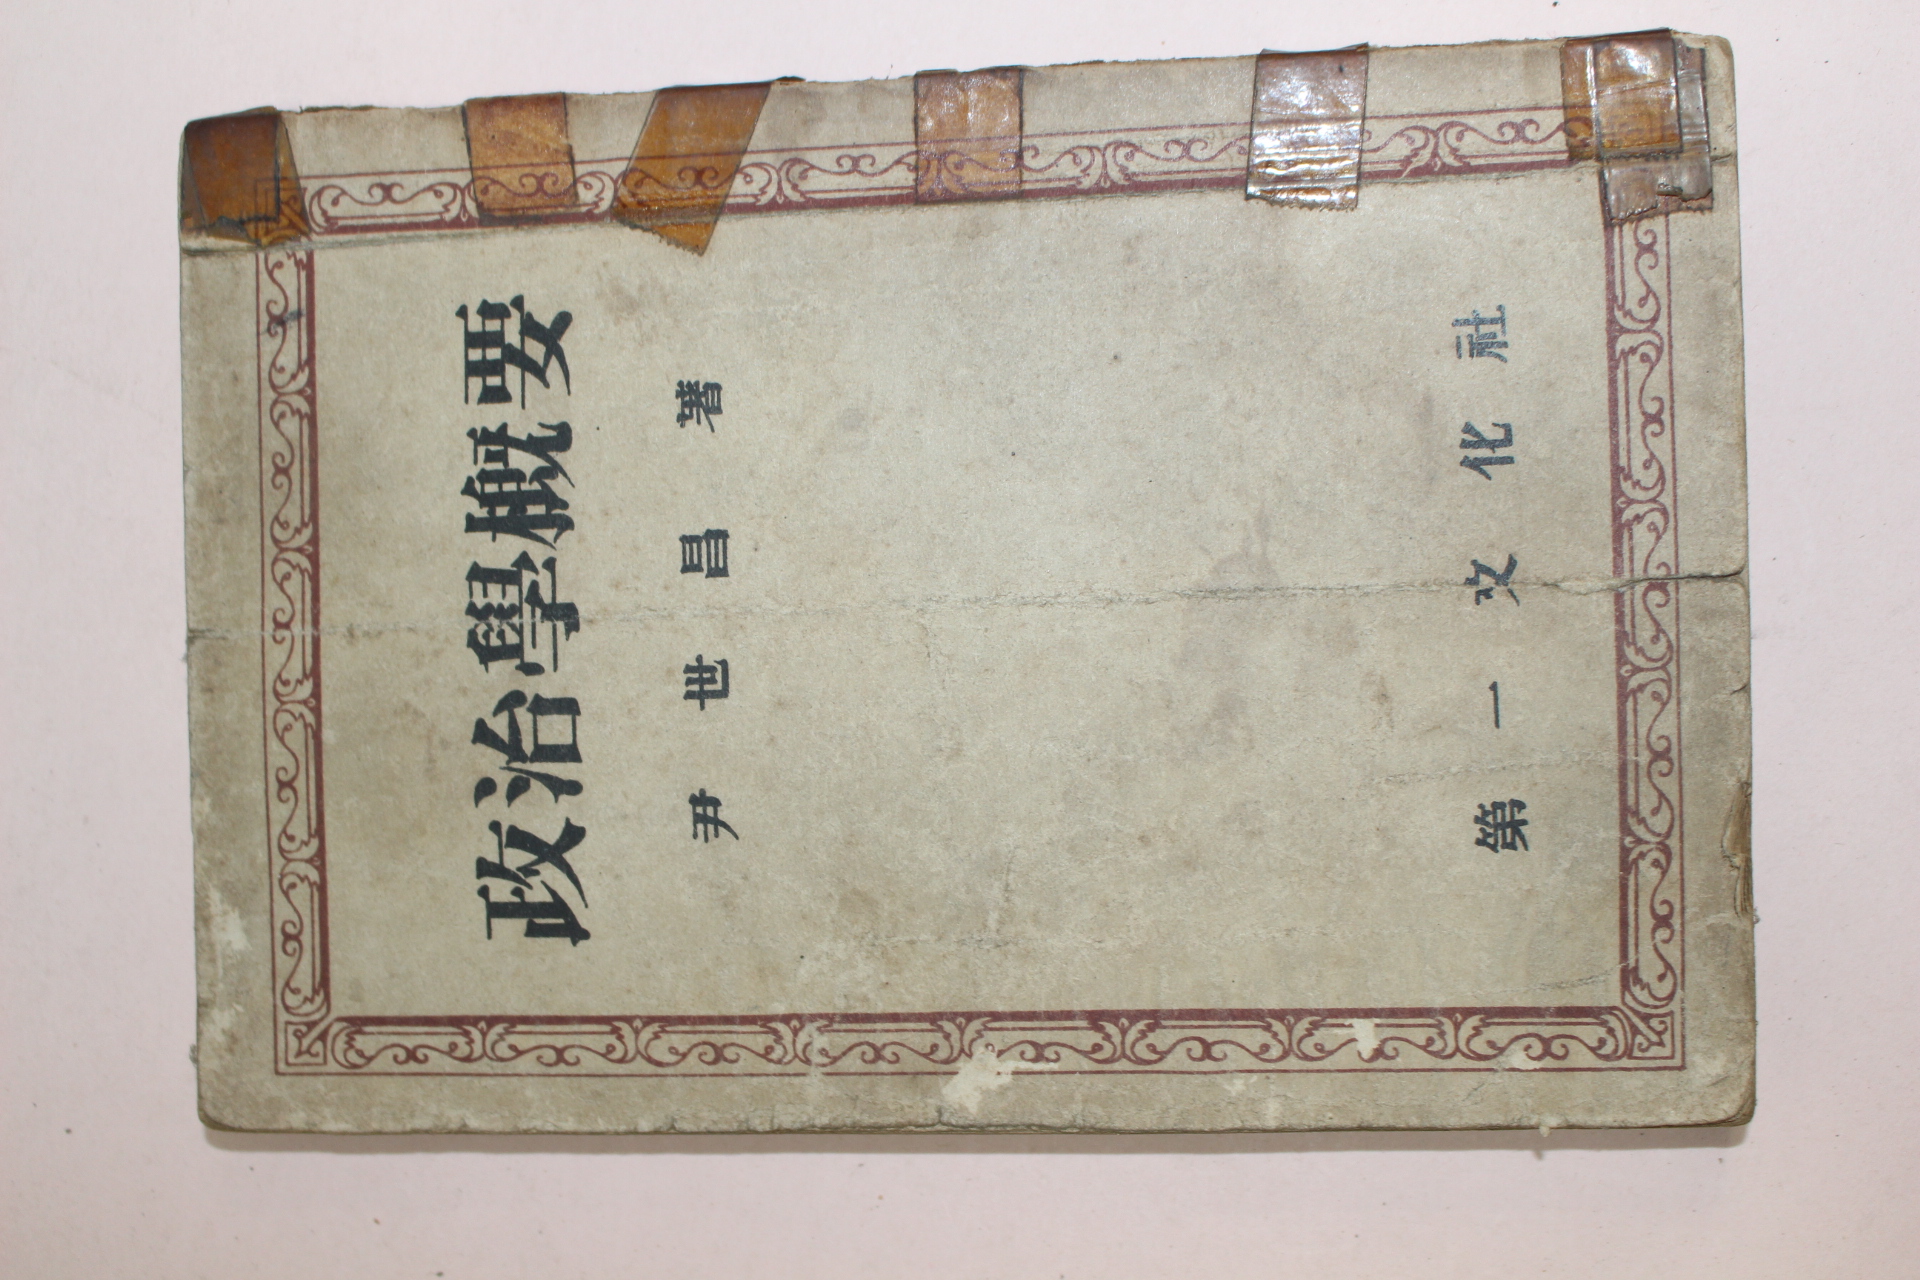 政治學概要
尹世昌 著
第一文化社